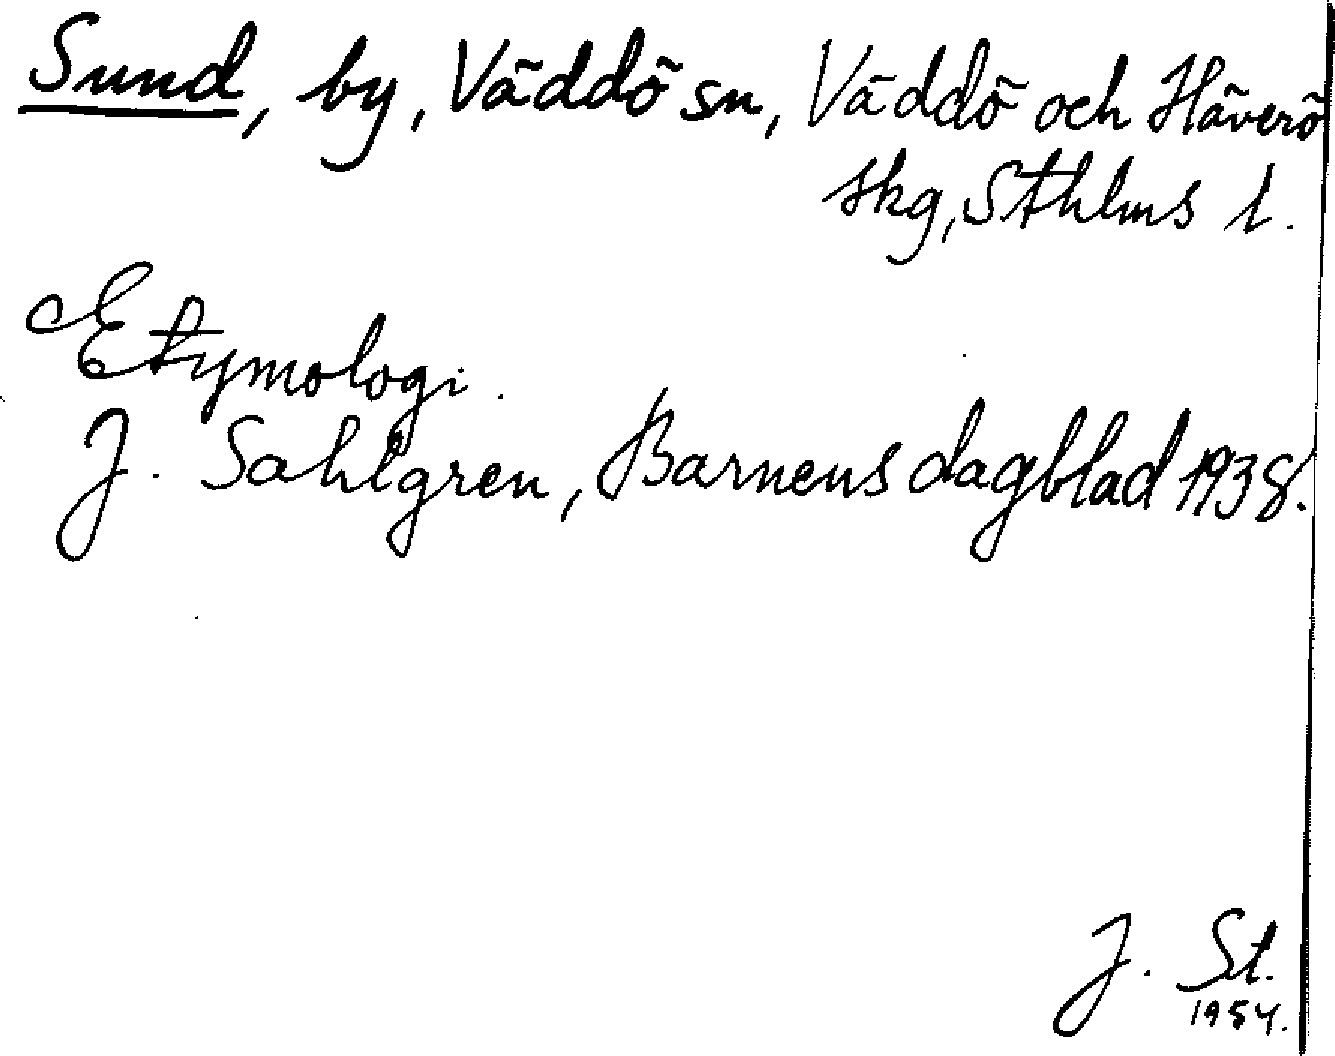 Sund, by, Väddö sn, Väddö och Häverö
skg, Sthlms l.
Etymologi.
J. Sahlgren, Barnens dagblad 1938.
J. St.
1954.